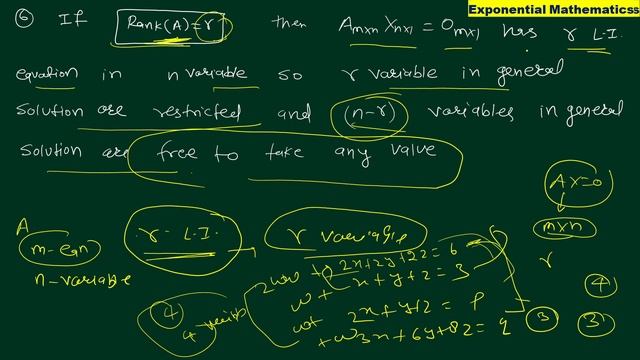 Exponential Mathematicss
⑥ If Rank(A)=r then Amxn Xnx1 = Omx1 has r L.I.
equation in n variable so r variable in general
Solution are restricted and (n-r) variables in general
Solution are free to take any value
AX=0
mxn
A
m-eqn
n-variable
r-L.I.
r variable
r
2w+2x+2y+2z=6
w+x+y+z=3
w+2x+y+z=
+w3x+6y+8z=
4
4
3
3